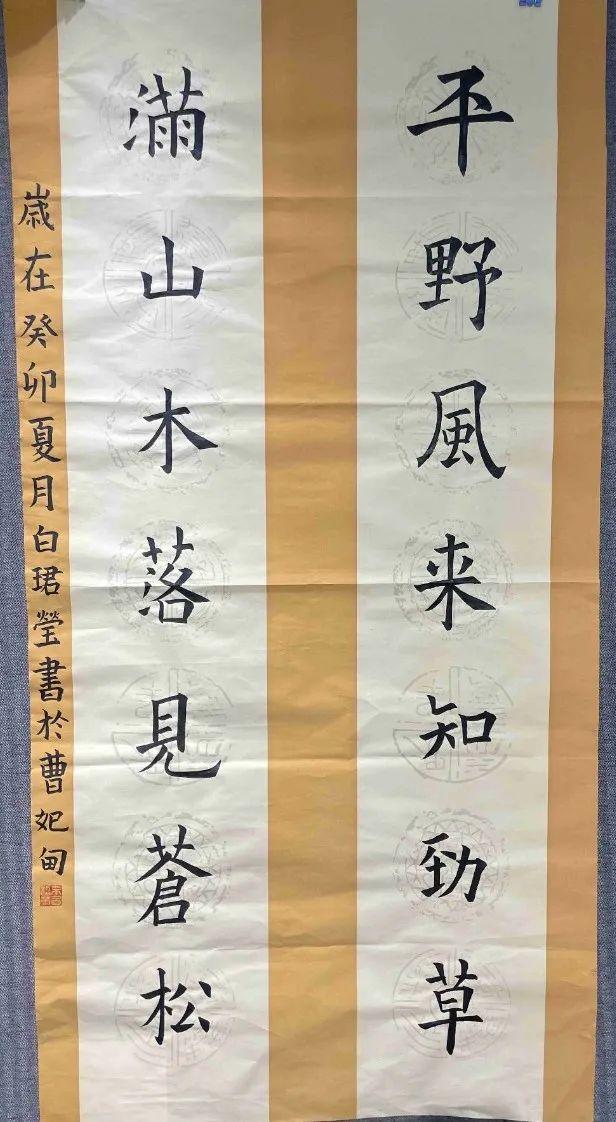 平野風来知勁草
滿山木落見蒼松
歲在癸卯夏月白珺瑩書於曹妃甸